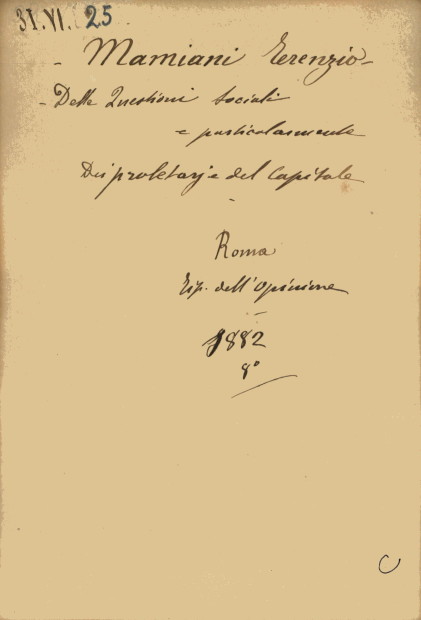 31.VI. 25
- Mamiani Terenzio -
- Delle Questioni Sociali
e particolarmente
Dei proletarj e del Capitale
-
Roma
Tip. dell'Opinione
-
1882
8°
C